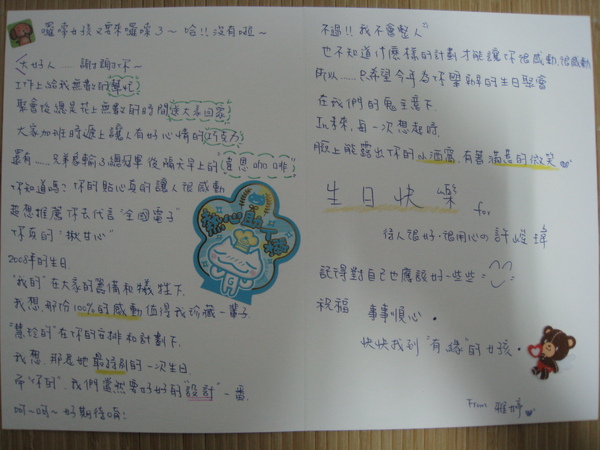 囉嗦女孩又要來囉嗦了~ 哈!! 沒有啦~
大好人......謝謝你~
工作上給我無數的幫忙
聚會後總是花上無數的時間送大家回家
大家加班時遞上讓人有好心情的巧克力
還有......兄弟象輸了總冠軍後隔天早上的"壹思ano咖啡"
你知道嗎? 你的貼心真的讓人很感動
超想推薦你去代言"全國電子"
你真的"揪甘心"
2008年的生日
"我的"在大家的籌備和犧牲下
我想,那份100%的感動值得我珍藏一輩子
"慧玲的"在你的安排和計劃下
我想,那是她最特別的一次生日
而"你的",我們當然要好好的"設計"一番
呵~呵~好期待唷!
熱心助人獎
不過!! 我不會整人
也不知道什麼樣的計劃才能讓你很感動很感動
所以......只希望今年為你舉辦的生日聚會
在我們的鬼主意下
In未來,每一次想起時
臉上能露出你的小酒窩,有著滿意的微笑
生日快樂
for
待人很好、很用心の許峻瑋
記得對自己也應該好一些些
祝福 事事順心。
快快找到"有緣"的女孩。
From 雅婷